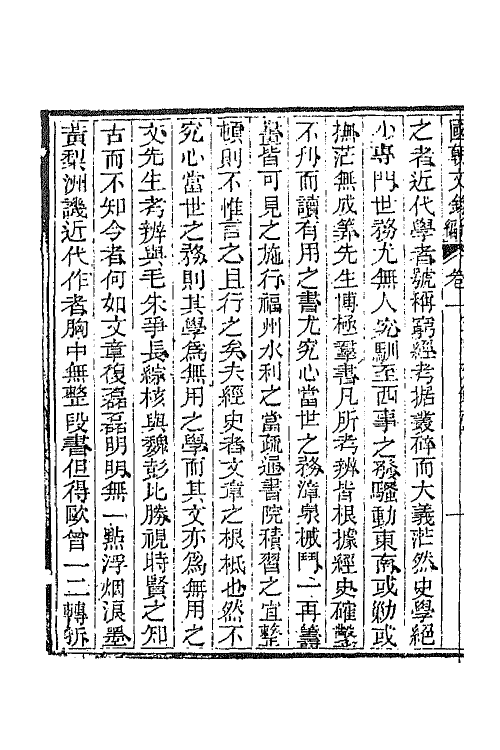 國朝文錄續 卷一
之者近代學者號稱窮經考据叢碎而大義茫然史學絕
少專門世務尤無人究馴至西事之發騷動東南或勦或
撫茫無成筭先生博極羣書凡所考辨皆根據經史確鑿
不刋而讀有用之書尤究心當世之務漳泉械鬥一再籌
畫皆可見之施行福州水利之當疏通書院積習之宜整
頓則不惟言之且行之矣夫經史者文章之根柢也然不
究心當世之務則其學爲無用之學而其文亦爲無用之
文先生考辨與毛朱爭長綜核與魏彭比勝視時賢之知
古而不知今者何如文章復磊磊明明無一點浮烟浪墨
黃梨洲譏近代作者胸中無整段書但得歐曾一二轉折